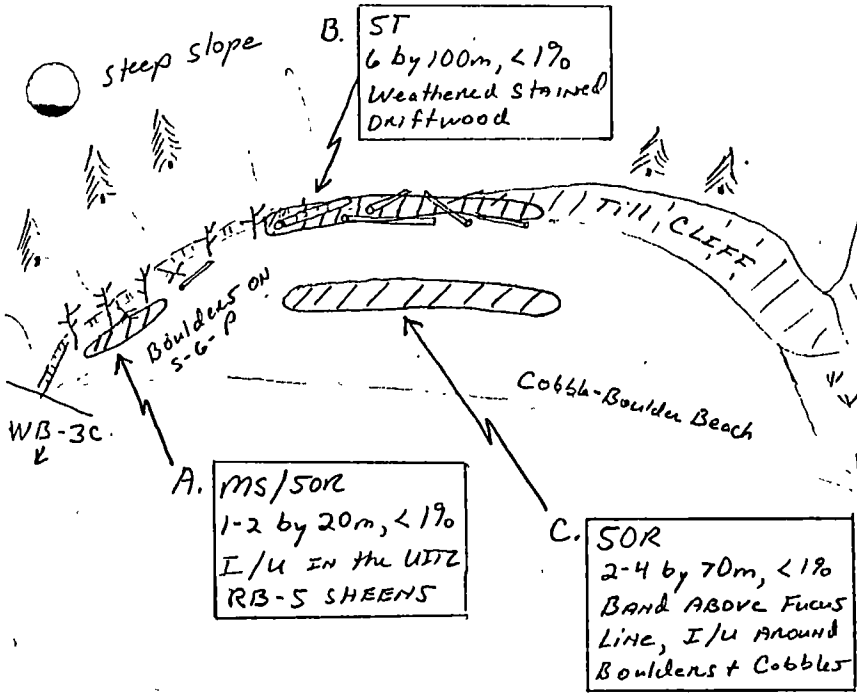 steep slope
B.
ST
6 by 100m, <1%
Weathered Stained
Driftwood
Till CLIFF
Boulders ON
S-G-P
Cobble-Boulder Beach
WB-3C.
A.
MS/SOR
1-2 by 20m, <1%
I/U IN the UITZ
RB-S SHEENS
C.
SOR
2-4 by 70m, <1%
BAND ABOVE FUCUS
LINE, I/U AROUND
Boulders + Cobbles